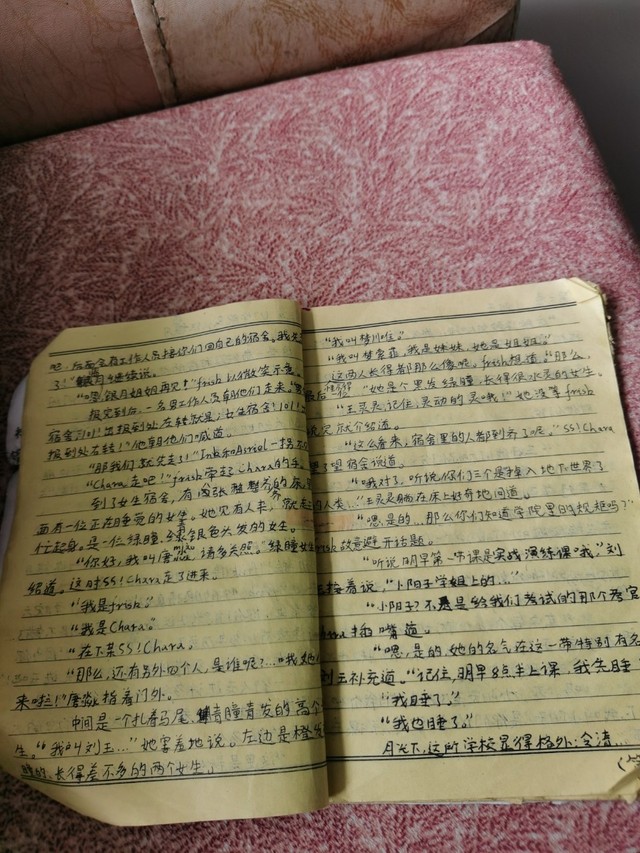 吧，后面会有工作人员接你们回自己的宿舍。我先
了！"继续说。
"嗯，银月姐姐再见！"fresh以微笑示意。
报完到后，一名男工作人员朝他们走来，"男
宿舍101！出报到处左转就是；女生宿舍101！出
报到处右转！"他朝他们喊道。
"那我们就先走了！"Ink和Error一
"Chara，走吧！"fresh牵起Chara的手。
到了女生宿舍，有四张整整齐齐的床，
面有一位正在睡觉的女生。她见有人来，就
忙起身。是一位绿瞳、银色头发的女生。
"你好，我叫唐淼淼，请多关照。"绿瞳女生
绍道。这时SS！Chara走了进来。
"我是fresh。"
"我是Chara。"
"在下是SS！Chara。
"那么，还有另外四个人，是谁呢？…"
来啦！"唐淼淼指着门外。
中间是一个扎着马尾，青瞳青发的高个
生。"我叫刘玉…"她害羞地说。左边是橙发
长得差不多的两个女生。
"我叫梦川唯。"
"我叫梦雪菲，我是妹妹，她是姐姐。"
这两人长得都那么像呢。fresh想道。"那么，
最后一位"她是个黑发绿瞳，长得很水灵的女生。
"王灵灵，记住，灵动的灵哦！"她没等fresh
说完就介绍道。
"这么看来，宿舍里的人都到齐了呢。"SS！Chara
了望宿舍说道。
"哦对了，听说你们三个是掉入地下世界了
的人类…"王灵灵躺在床上好奇地问道。
"嗯，是的…那么你们知道学院里的规矩吗？"
fresh故意避开话题。
"听说明早第一节课是实战演练课哦。"刘
玉接着说，"小阳子学姐上的…"
"小阳子？不是给我们考试的那个考官
Chara插嘴道。
"嗯，是的，她的名气在这一带特别有名
刘玉补充道。"记住，明早8点半上课，我先睡
"我睡了。"
"我也睡了。"
月光下，这所学校显得格外冷清…